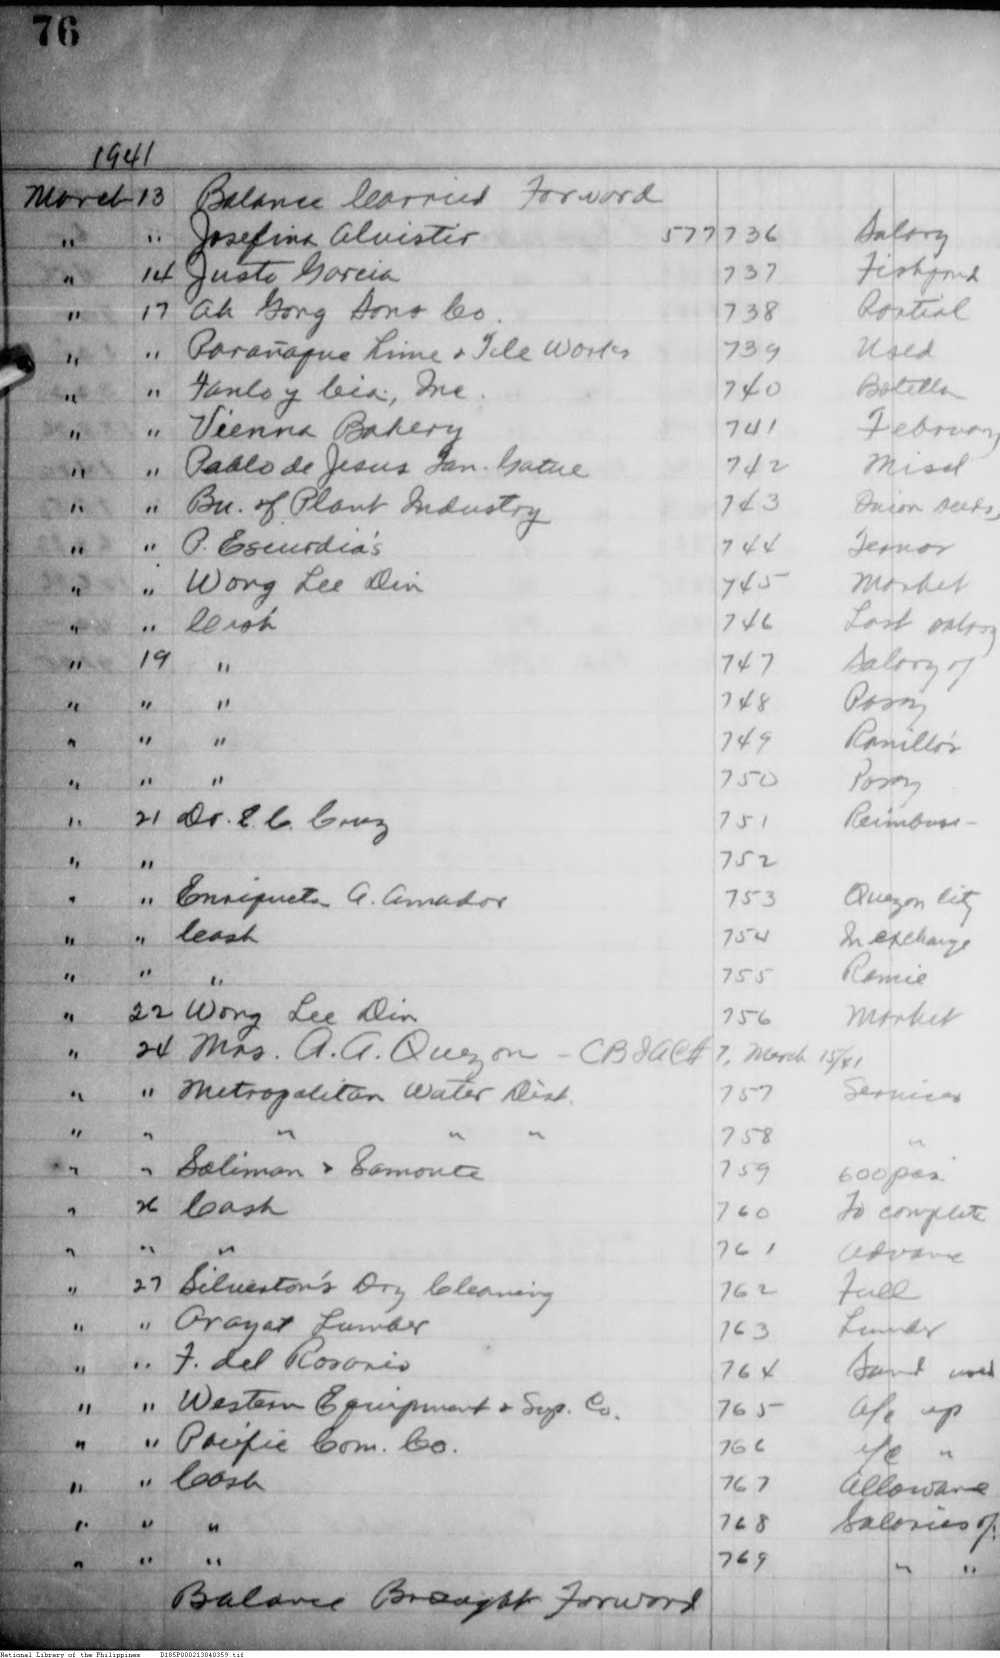 76
1941
March 13 Balance Carried Forward
" " Josefina Alvistir 577736 Salary
" 14 Justo Garcia 737 Fishpond
" 17 Ah Gong Sons Co. 738 Partial
" " Parañaque Lime & Tile Works 739 Used
" " Tanlo y Cia, Inc. 740 Botella
" " Vienna Bakery 741 February
" " Pablo de Jesus 742 Miscl
" " Bu. of Plant Industry 743 Onion seeds,
" " P. Escurdia's 744 Ternos
" " Wong Lee Din 745 Market
" " Cash 746 Last salary
" 19 " 747 Salary of
" " " 748 Pasay
" " " 749 Ranillo's
" " " 750 Pasay
" 21 Dr. E. C. Cruz 751 Reimburse-
" " 752
" " Enriqueta A. Amador 753 Quezon City
" " Cash 754 In exchange
" " " 755 Ramie
" 22 Wong Lee Din 756 Market
" 24 Mrs. A. A. Quezon - 7, March 15/41
" " Metropolitan Water Dist. 757 Services
" " " " " 758 "
" " Soliman & 759 600 pcs.
" 26 Cash 760 To complete
" " " 761 Advance
" 27 Silverton's Dry Cleaning 762 Full
" " Arayat Lumber 763 Lumber
" " F. del Rosario 764 Sand used
" " Western Equipment & Sup. Co. 765 a/c up
" " Pacific Com. Co. 766 a/c "
" " Cash 767 Allowance
" " " 768 Salaries of
" " " 769 " "
Balance Brought Forward
National Library of the Philippines D185P000213040359.tif